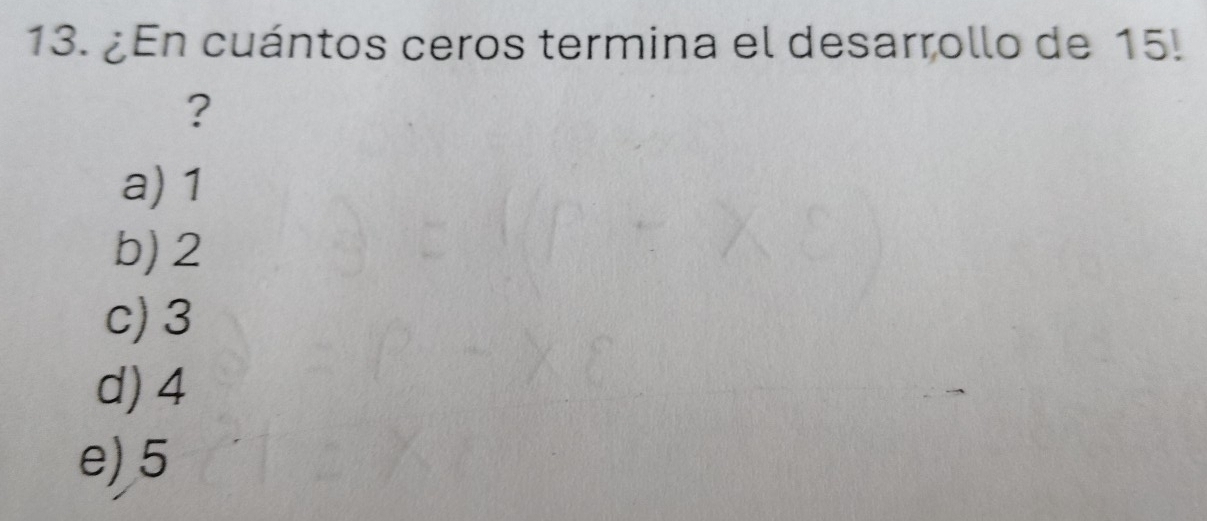 13. ¿En cuántos ceros termina el desarrollo de 15!
?
a) 1
b) 2
c) 3
d) 4
e) 5